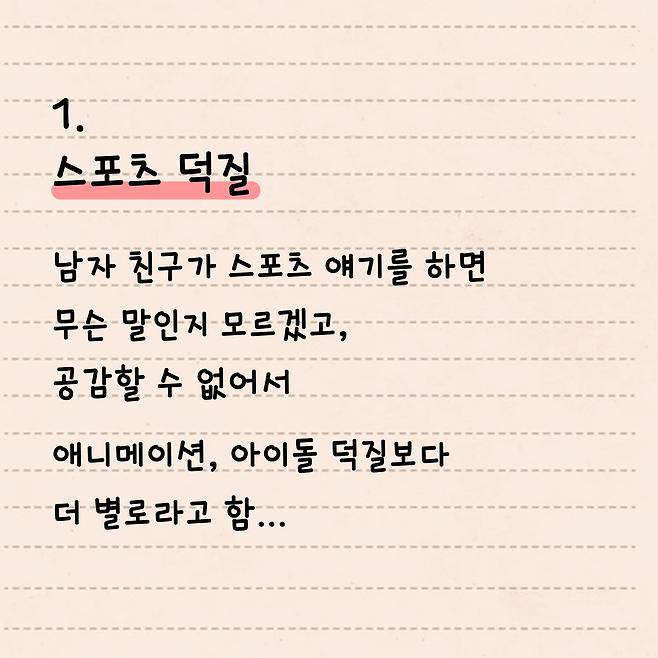 1.
스포츠 덕질
남자 친구가 스포츠 얘기를 하면
무슨 말인지 모르겠고,
공감할 수 없어서
애니메이션, 아이돌 덕질보다
더 별로라고 함...